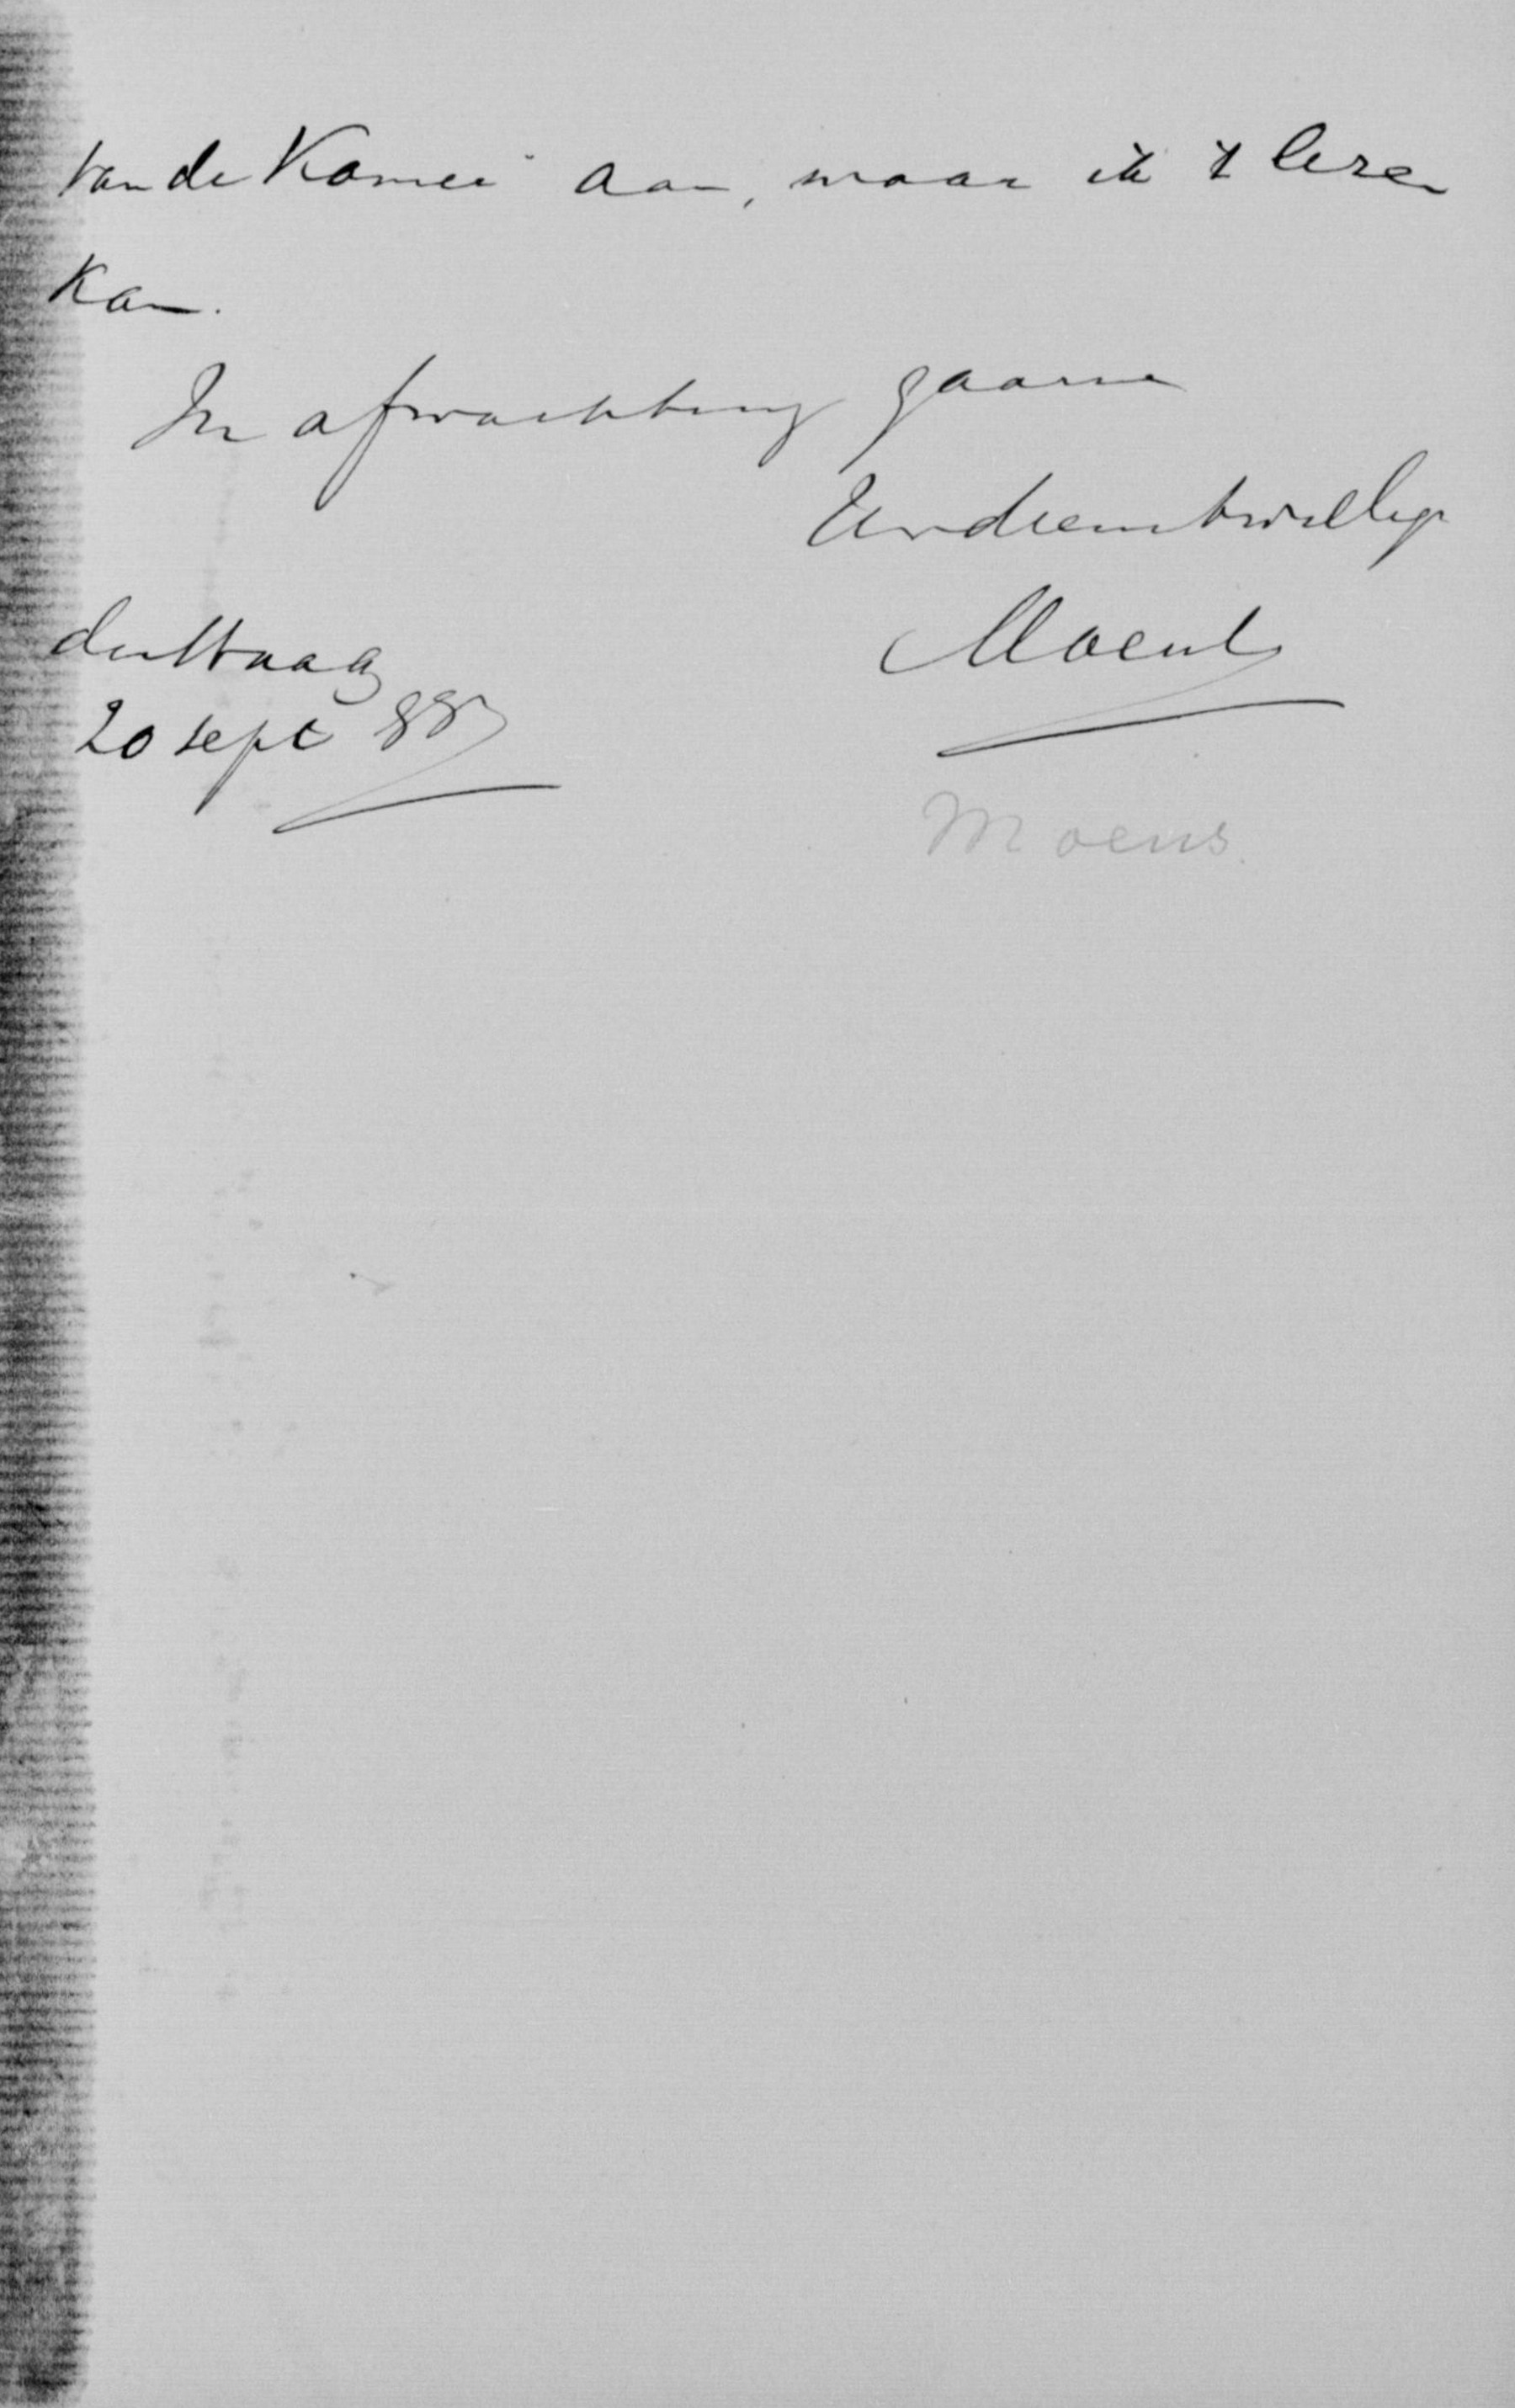 van de Kamer aan, waar ik 't lezen
kan.
In afwachting gaarne
Uwdienstwillige
Moens
den Haag
20 sept 88
Moens.